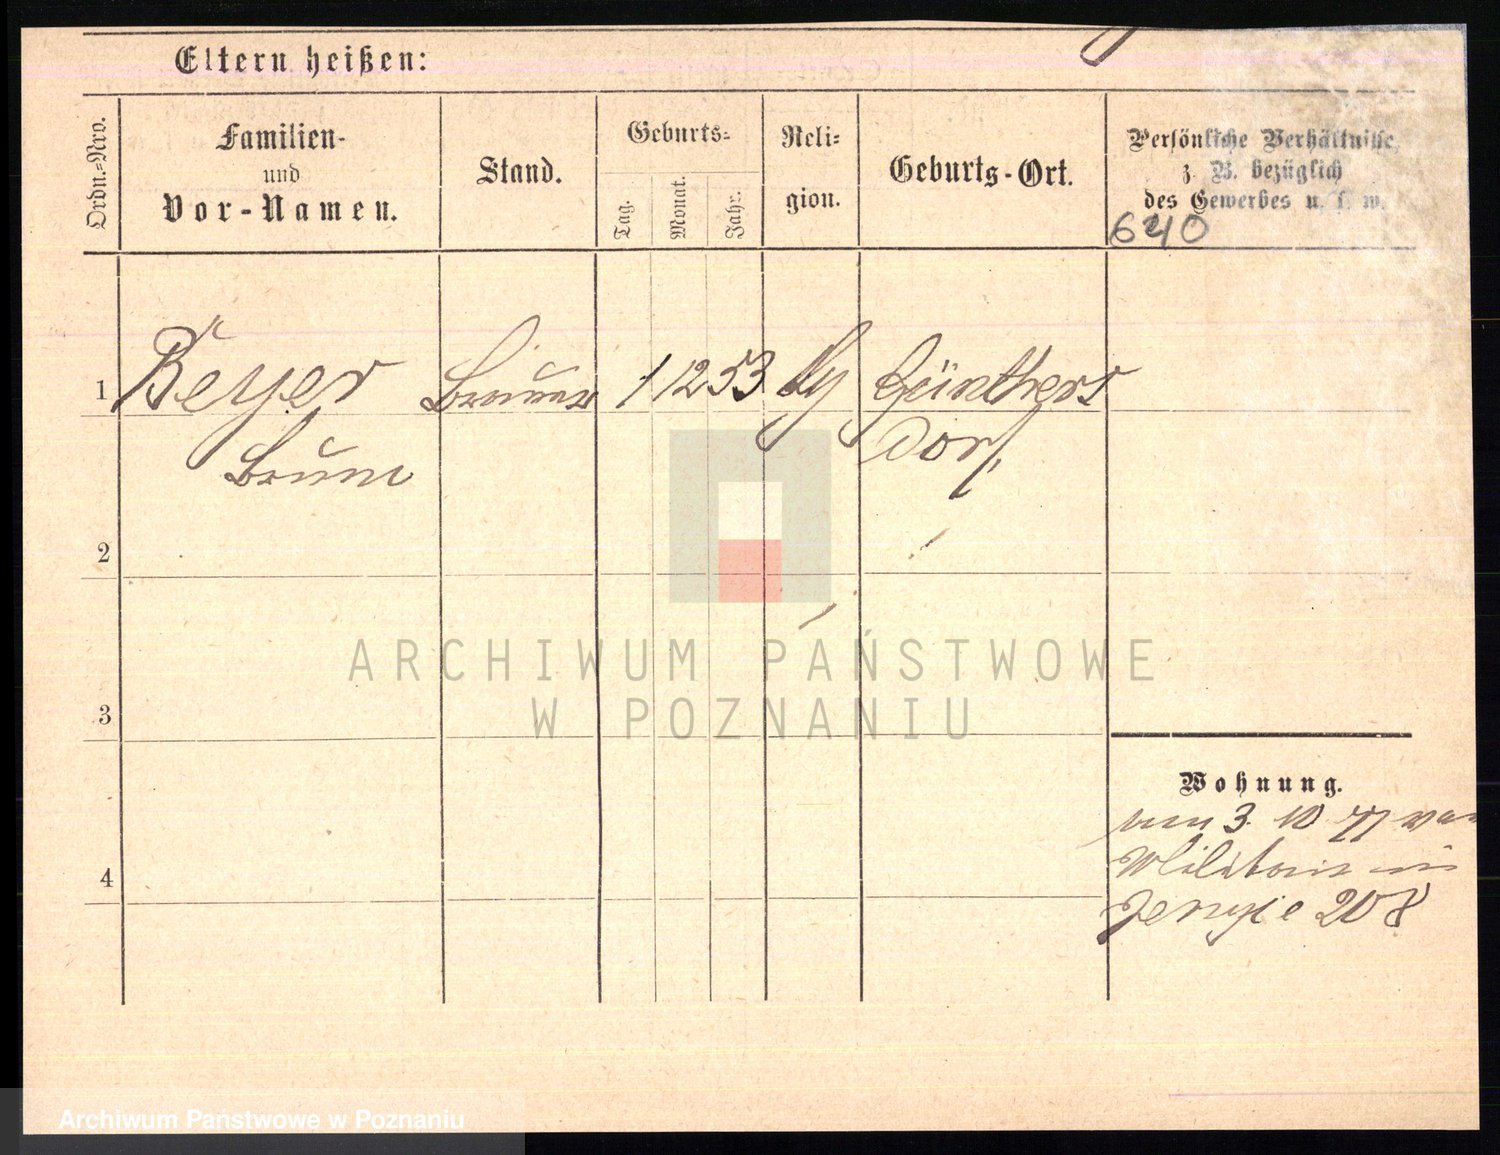 Eltern heißen:
Ordn.-Nro.
Familien-
und
Vor-Namen.
Stand.
Geburts-
Tag.
Monat.
Jahr.
Reli-
gion.
Geburts-Ort.
Persönliche Verhältnisse
z. B. bezüglich
des Gewerbes u. s. w.
640
1
Beyer
Brauer
1 12 53
Günthers
Bruno
Dorf
2
3
4
ARCHIWUM PAŃSTWOWE
W POZNANIU
Wohnung.
3. 10 77
Jerzyce 208
Archiwum Państwowe w Poznaniu